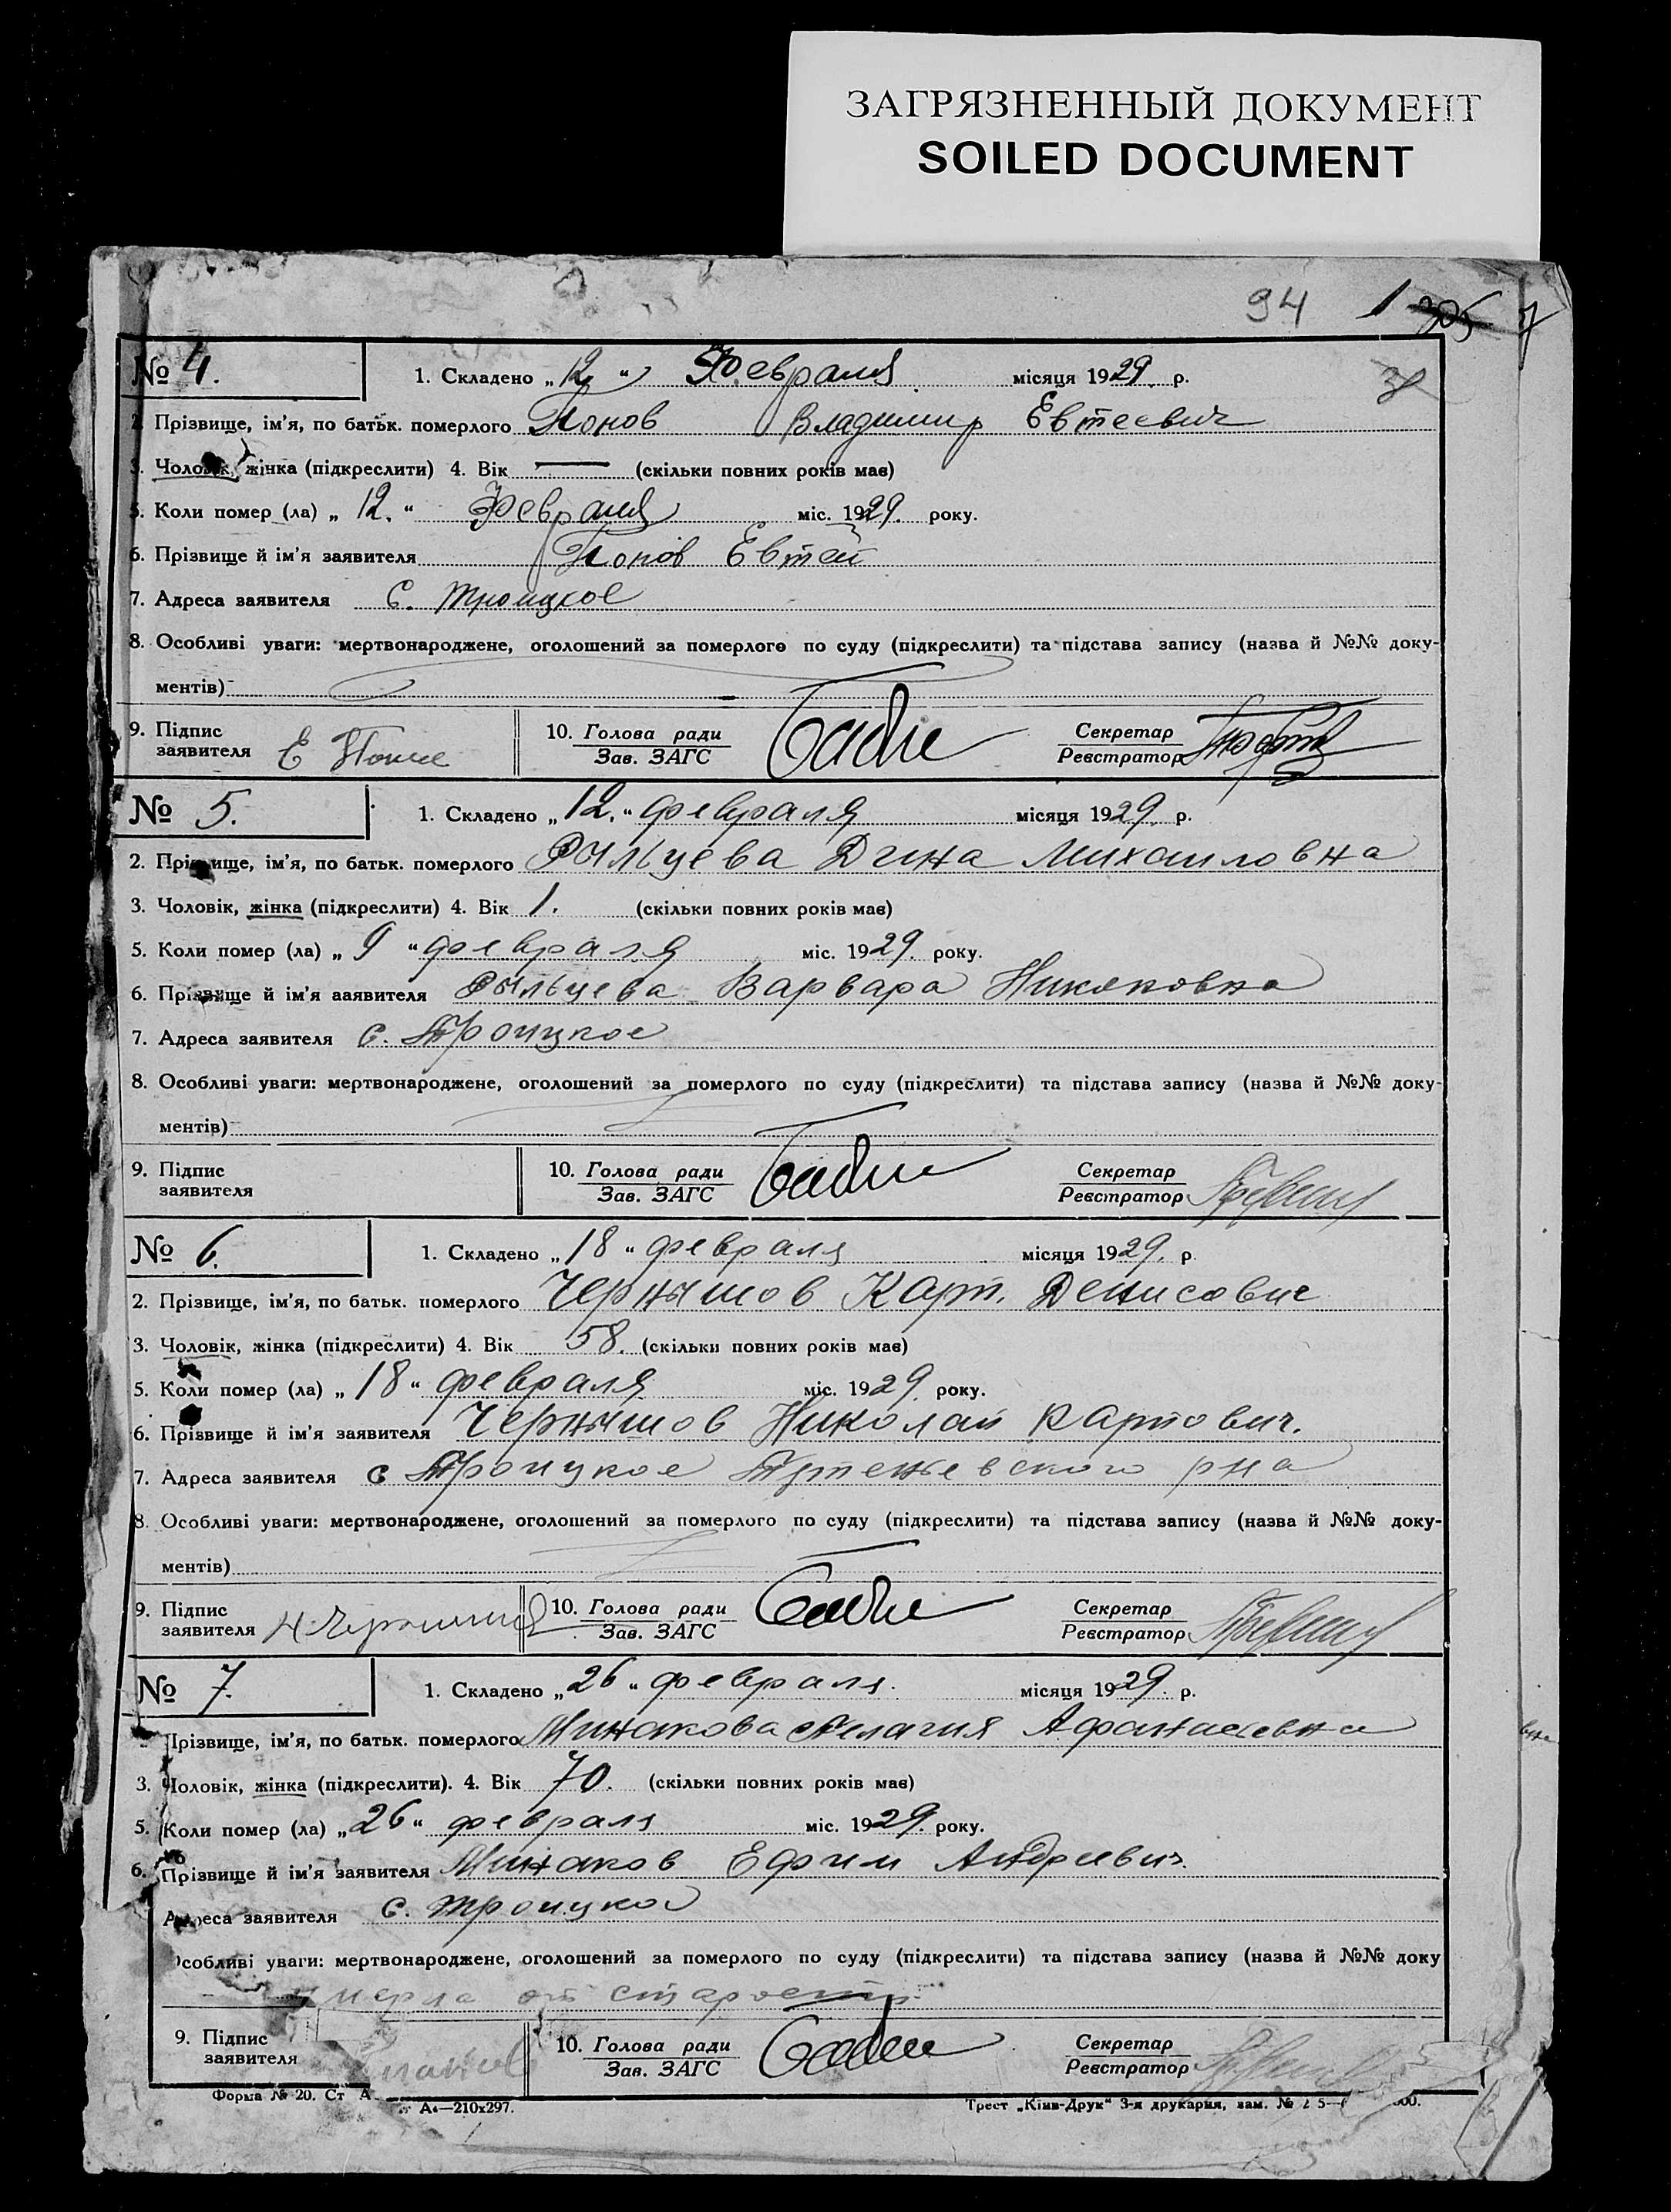 ЗАГРЯЗНЕННЫЙ ДОКУМЕНТ
SOILED DOCUMENT
94 1 305 7
№ 4. 1. Складено „12“ Февраля місяця 1929. р.
Прізвище, ім'я, по батьк. померлого Попов Владимир Евтеевич
3. Чоловік, жінка (підкреслити) 4. Вік — (скільки повних років має)
5. Коли помер (ла) „12.“ Февраля міс. 1929. року.
6. Прізвище й ім'я заявителя Попов Евтей
7. Адреса заявителя с. Троицкое
8. Особливі уваги: мертвонароджене, оголошений за померлого по суду (підкреслити) та підстава запису (назва й №№ доку-
ментів)
9. Підпис заявителя Е 10. Голова ради Зав. ЗАГС Секретар Реєстратор
№ 5. 1. Складено „12.“ февраля місяця 1929. р.
2. Прізвище, ім'я, по батьк. померлого Рыльцева Дина Михаиловна
3. Чоловік, жінка (підкреслити) 4. Вік 1. (скільки повних років має)
5. Коли помер (ла) „9“ февраля міс. 1929. року.
6. Прізвище й ім'я заявителя Рыльцева Варвара
7. Адреса заявителя с. Троицкое
8. Особливі уваги: мертвонароджене, оголошений за померлого по суду (підкреслити) та підстава запису (назва й №№ доку-
ментів)
9. Підпис заявителя 10. Голова ради Зав. ЗАГС Секретар Реєстратор
№ 6. 1. Складено „18“ февраля місяця 1929. р.
2. Прізвище, ім'я, по батьк. померлого Чернышов Карп. Денисович
3. Чоловік, жінка (підкреслити) 4. Вік 58. (скільки повних років має)
5. Коли помер (ла) „18“ февраля міс. 1929. року.
6. Прізвище й ім'я заявителя Чернышов Николай Карпович.
7. Адреса заявителя с Троицкое рна
8. Особливі уваги: мертвонароджене, оголошений за померлого по суду (підкреслити) та підстава запису (назва й №№ доку-
ментів)
9. Підпис заявителя 10. Голова ради Зав. ЗАГС Секретар Реєстратор
№ 7. 1. Складено „26“ февраля. місяця 1929. р.
Прізвище, ім'я, по батьк. померлого Минакова Пелагия Афанасьевна
3. Чоловік, жінка (підкреслити). 4. Вік 70. (скільки повних років має)
5. Коли помер (ла) „26“ февраля міс. 1929. року.
6. Прізвище й ім'я заявителя Минаков Ефим Андреевич.
Адреса заявителя с. Троицкое
Особливі уваги: мертвонароджене, оголошений за померлого по суду (підкреслити) та підстава запису (назва й №№ доку
умерла от старости
9. Підпис заявителя 10. Голова ради Зав. ЗАГС Секретар Реєстратор
Форма № 20. Ст А
А4—210х297.
Трест „Київ-Друк“ 3-я друкарня, зам. №